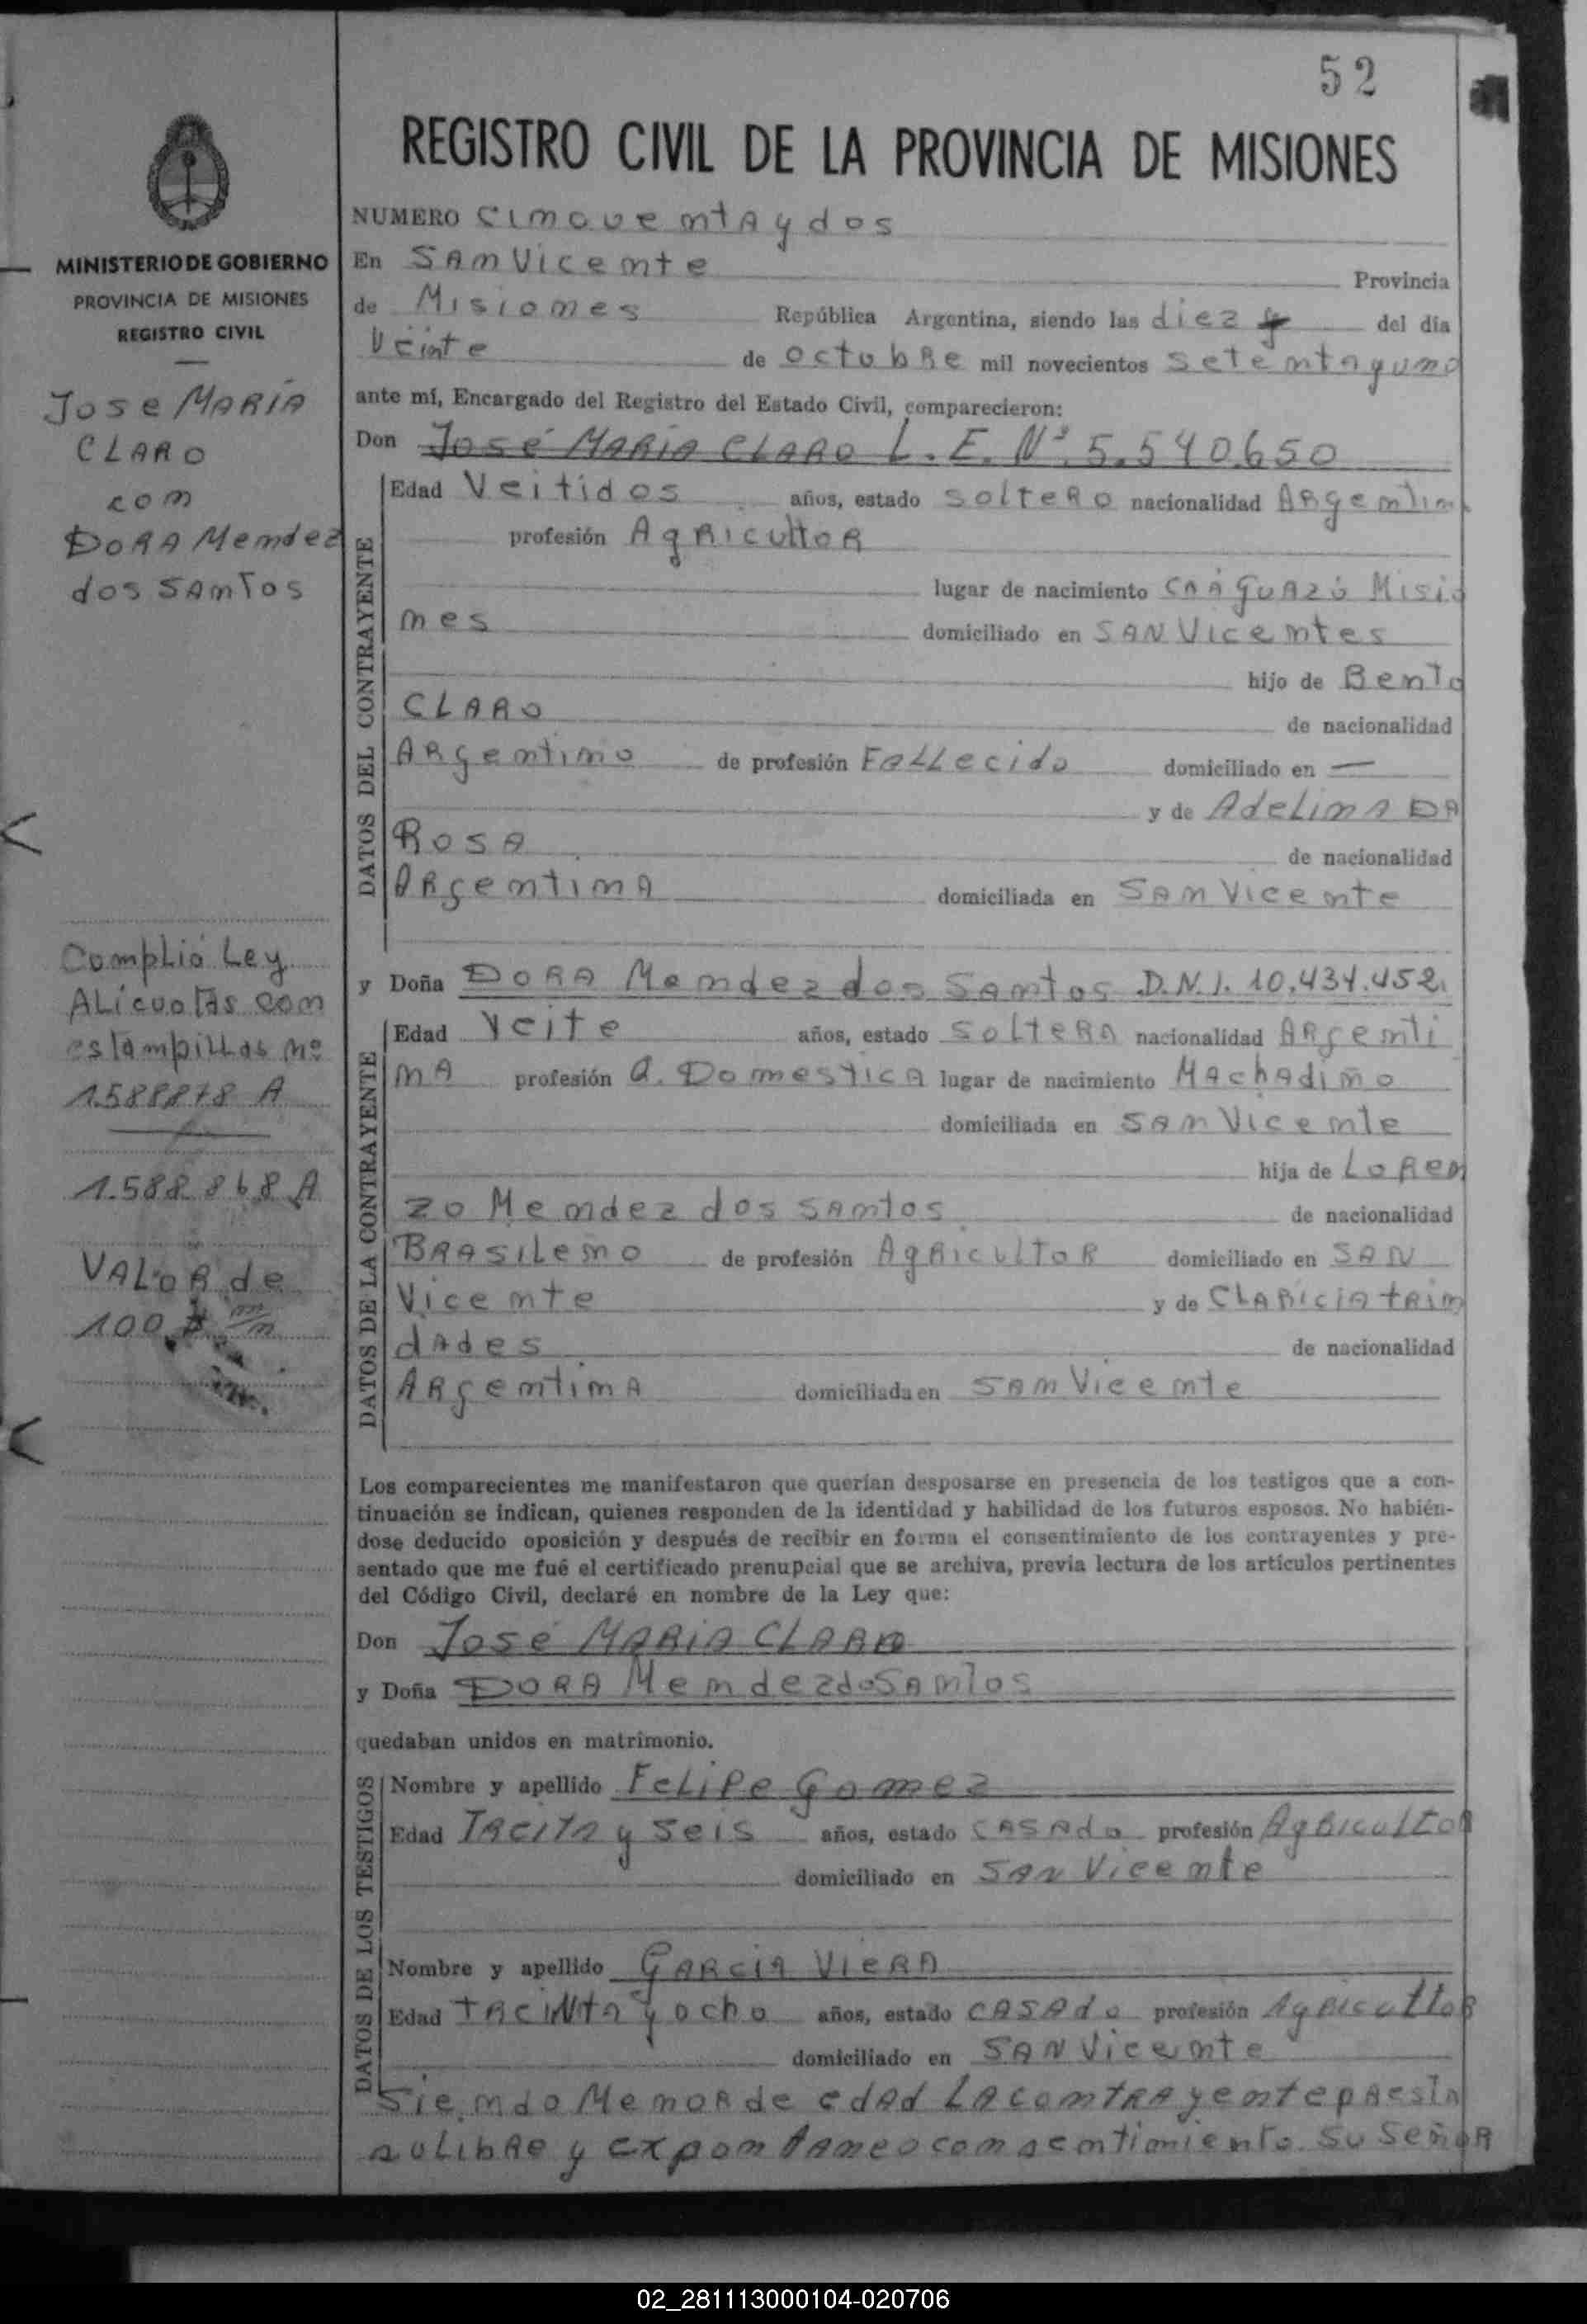 52
REGISTRO CIVIL DE LA PROVINCIA DE MISIONES
MINISTERIO DE GOBIERNO
PROVINCIA DE MISIONES
REGISTRO CIVIL
Jose MARÍA
CLARO
com
DORA Mendez
dos SAmTos
Complió Ley
ALicuotas com
estampillas nº
1588878 A
1.588.868 A
VALOR de
100 $ m/n
NUMERO cimcuemtAydos
En SAm Vicemte Provincia
de Misiomes República Argentina, siendo las diez del día
Veinte de octubRe mil novecientos setemtayumo
ante mí, Encargado del Registro del Estado Civil, comparecieron:
Don José MARIA CLARO L. E. Nº 5.540.650
DATOS DEL CONTRAYENTE
Edad Veitidos años, estado solteRo nacionalidad ARgemtim
profesión AgRicultoR
lugar de nacimiento CAAguAzú Misio
mes domiciliado en SAN Vicemtes
hijo de Bento
CLARO de nacionalidad
ARgemtimo de profesión FaLLecido domiciliado en —
y de AdeLimA DA
RosA de nacionalidad
ARgemtimA domiciliada en SAm Vicemte
y Doña DORA Memdez dos SAmtos D.N.I. 10.434.452
DATOS DE LA CONTRAYENTE
Edad Veite años, estado solteRA nacionalidad ARgemti
mA profesión Q. DomesticA lugar de nacimiento MAchAdiño
domiciliada en SAm Vicemte
hija de LoRem
zo Memdez dos SAmtos de nacionalidad
BRASiLeño de profesión AgRicultoR domiciliado en SAN
Vicemte y de CLARiciA tRim
dAdes de nacionalidad
ARgemtimA domiciliada en SAm Vicemte
Los comparecientes me manifestaron que querían desposarse en presencia de los testigos que a con-
tinuación se indican, quienes responden de la identidad y habilidad de los futuros esposos. No habién-
dose deducido oposición y después de recibir en forma el consentimiento de los contrayentes y pre-
sentado que me fué el certificado prenupcial que se archiva, previa lectura de los artículos pertinentes
del Código Civil, declaré en nombre de la Ley que:
Don José MARIA CLARO
y Doña DORA MemdezdoSAmtos
quedaban unidos en matrimonio.
DATOS DE LOS TESTIGOS
Nombre y apellido FeLiPe Gomez
Edad TReita y seis años, estado CASAdo profesión AgRicultoR
domiciliado en SAN Vicemte
Nombre y apellido GARCIA VIeRA
Edad tReiNta y ocho años, estado CASAdo profesión AgRicultoR
domiciliado en SAN Vicemte
Siemdo MemoR de edAd LA comtRAyemte pRestA
su LibRe y expomtameo comsentimiento su SeñoR
02_281113000104-020706